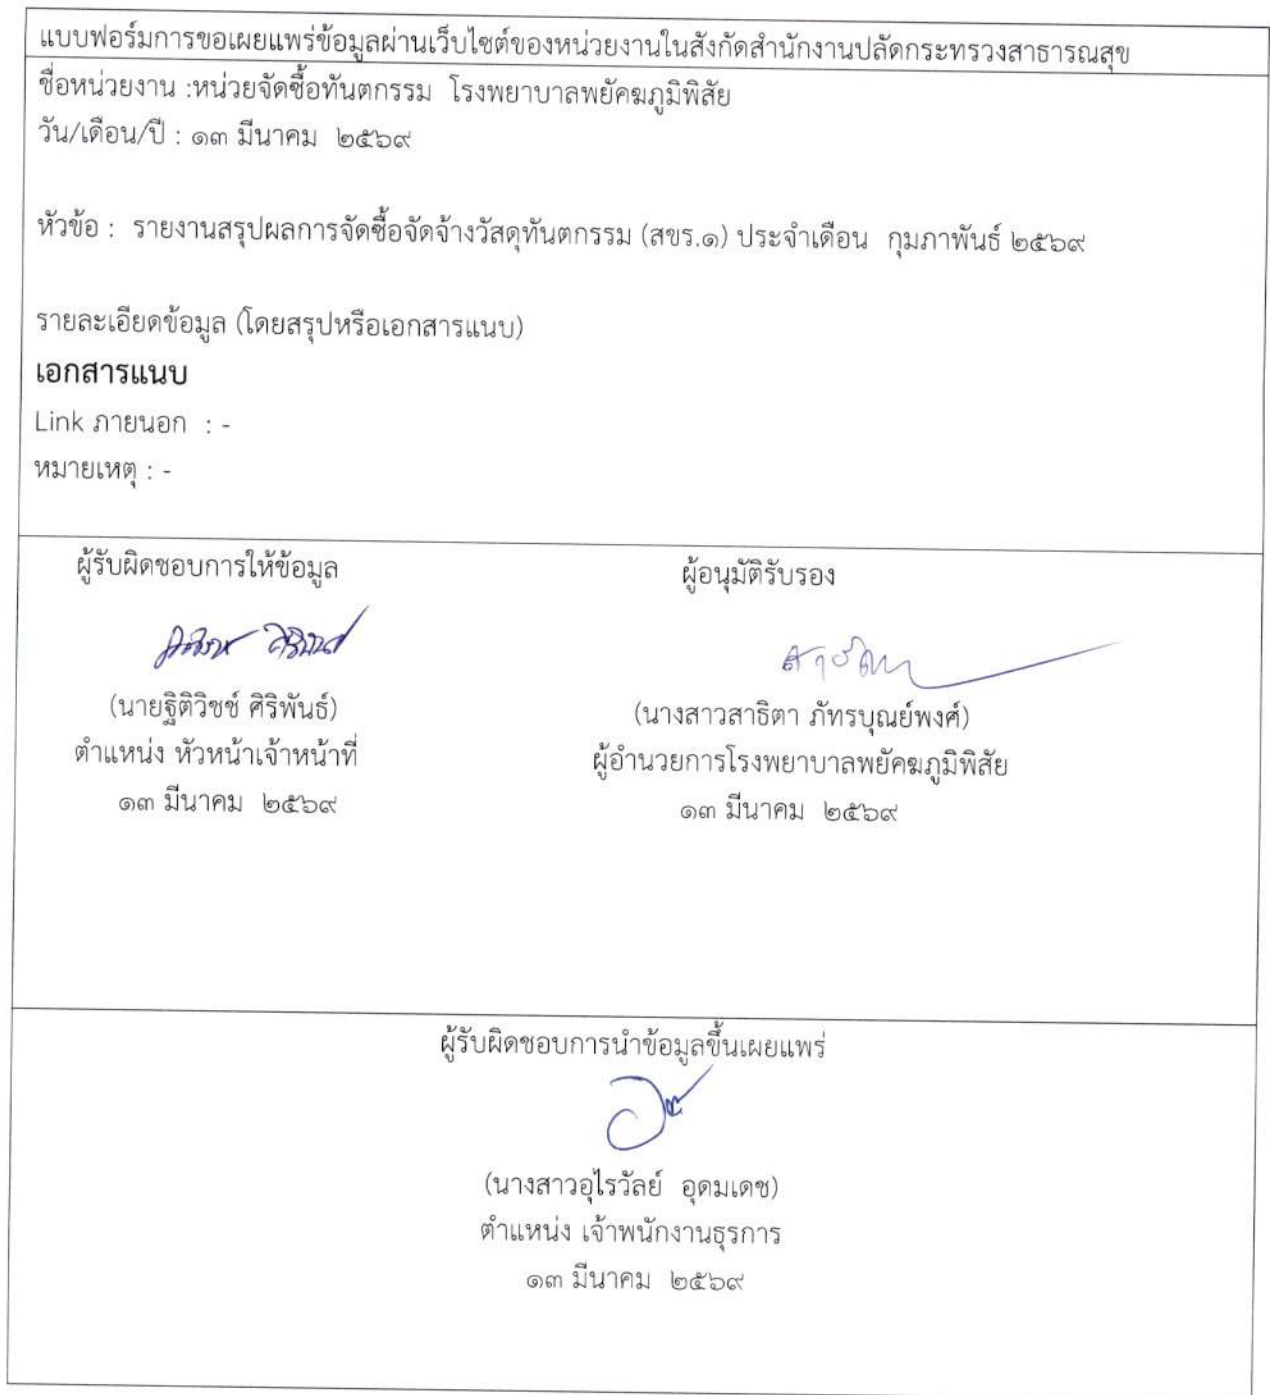 แบบฟอร์มการขอเผยแพร่ข้อมูลผ่านเว็บไซต์ของหน่วยงานในสังกัดสำนักงานปลัดกระทรวงสาธารณสุข
ชื่อหน่วยงาน :หน่วยจัดซื้อทันตกรรม โรงพยาบาลพยัคฆภูมิพิสัย
วัน/เดือน/ปี : ๑๓ มีนาคม ๒๕๖๙
หัวข้อ : รายงานสรุปผลการจัดซื้อจัดจ้างวัสดุทันตกรรม (สขร.๑) ประจำเดือน กุมภาพันธ์ ๒๕๖๙
รายละเอียดข้อมูล (โดยสรุปหรือเอกสารแนบ)
เอกสารแนบ
Link ภายนอก : -
หมายเหตุ : -
ผู้รับผิดชอบการให้ข้อมูล
(นายฐิติวิชช์ ศิริพันธ์)
ตำแหน่ง หัวหน้าเจ้าหน้าที่
๑๓ มีนาคม ๒๕๖๙
ผู้อนุมัติรับรอง
(นางสาวสาธิตา ภัทรบุณย์พงศ์)
ผู้อำนวยการโรงพยาบาลพยัคฆภูมิพิสัย
๑๓ มีนาคม ๒๕๖๙
ผู้รับผิดชอบการนำข้อมูลขึ้นเผยแพร่
(นางสาวอุไรวัลย์ อุดมเดช)
ตำแหน่ง เจ้าพนักงานธุรการ
๑๓ มีนาคม ๒๕๖๙